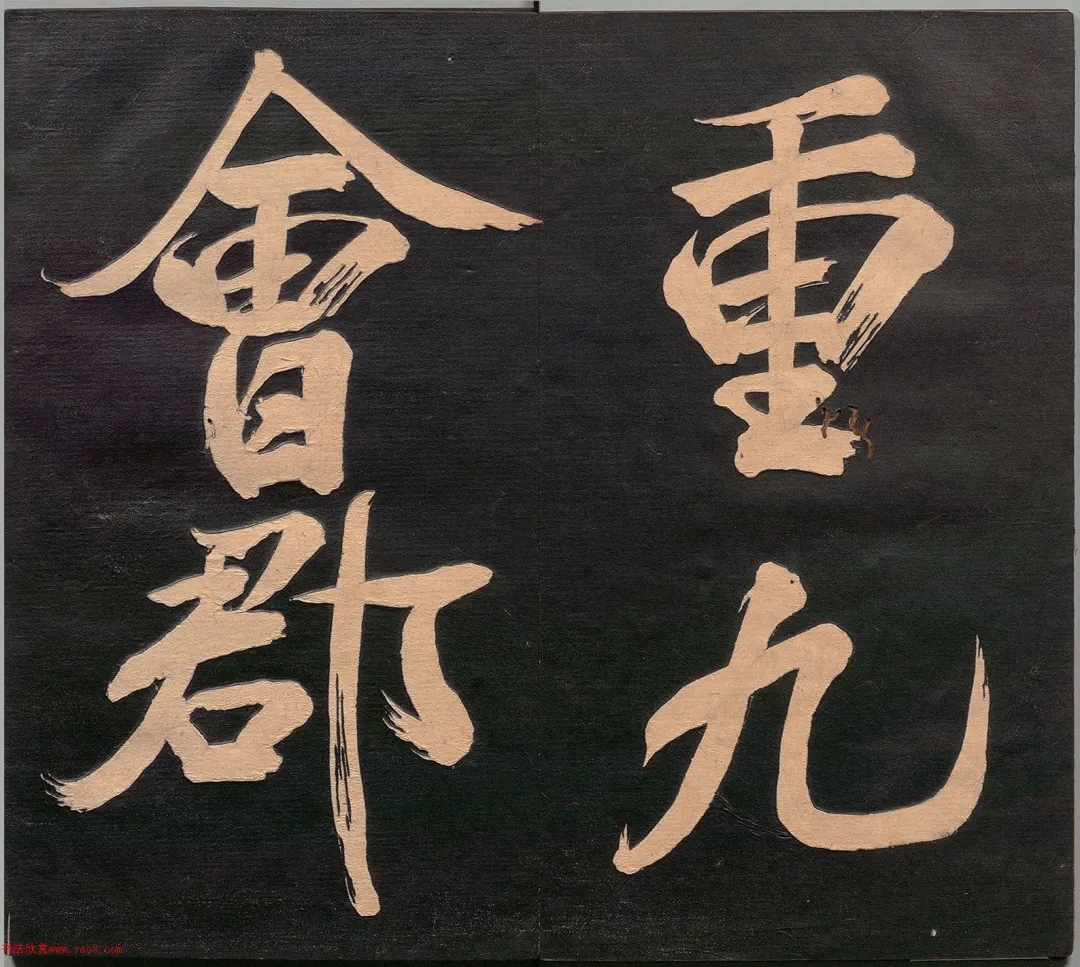 重九
會郡
书法欣赏www.yac8.com